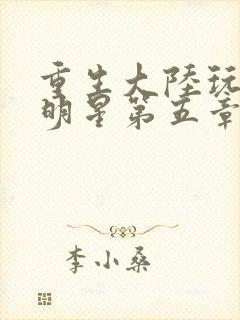 重生大陸玩
明星第五章
李小桑